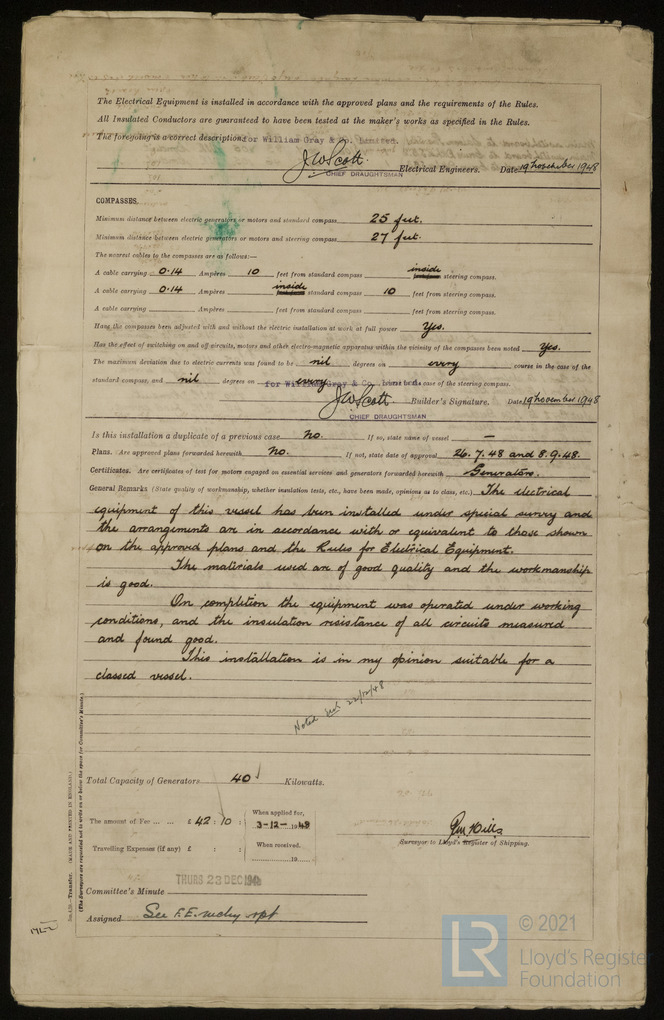 The Electrical Equipment is installed in accordance with the approved plans and the requirements of the Rules.
All Insulated Conductors are guaranteed to have been tested at the maker's works as specified in the Rules.
The foregoing is a correct description. for William Gray & Co. Limited.
J.W. Scott. Electrical Engineers. Date 19 November 1948
CHIEF DRAUGHTSMAN
COMPASSES.
Minimum distance between electric generators or motors and standard compass 25 feet.
Minimum distance between electric generators or motors and steering compass 27 feet.
The nearest cables to the compasses are as follows:—
A cable carrying 0.14 Ampères 10 feet from standard compass inside steering compass.
A cable carrying 0.14 Ampères inside standard compass 10 feet from steering compass.
A cable carrying Ampères feet from standard compass feet from steering compass.
Have the compasses been adjusted with and without the electric installation at work at full power Yes.
Has the effect of switching on and off circuits, motors and other electro-magnetic apparatus within the vicinity of the compasses been noted Yes.
The maximum deviation due to electric currents was found to be nil degrees on every course in the case of the
standard compass, and nil degrees on every course in the case of the steering compass.
for William Gray & Co.
J.W. Scott Builder's Signature. Date 19 November 1948
CHIEF DRAUGHTSMAN
Is this installation a duplicate of a previous case No. If so, state name of vessel —
Plans. Are approved plans forwarded herewith No. If not, state date of approval 26.7.48 and 8.9.48.
Certificates. Are certificates of test for motors engaged on essential services and generators forwarded herewith Generators.
General Remarks (State quality of workmanship, whether insulation tests, etc., have been made, opinions as to class, etc.) The electrical
equipment of this vessel has been installed under special survey and
the arrangements are in accordance with or equivalent to those shown
on the approved plans and the Rules for Electrical Equipment.
The materials used are of good quality and the workmanship
is good.
On completion the equipment was operated under working
conditions, and the insulation resistance of all circuits measured
and found good.
This installation is in my opinion suitable for a
classed vessel.
Noted 22/12/48
Total Capacity of Generators 40 Kilowatts.
The amount of Fee ... ... £ 42 : 10 : When applied for, 3-12-1948
Travelling Expenses (if any) £ : : When received, 19
Surveyor to Lloyd's Register of Shipping.
Committee's Minute THURS 23 DEC 1948
Assigned See F.E. mchy rpt
(The Surveyors are requested not to write on or below the space for Committee's Minute.)
(MADE AND PRINTED IN ENGLAND.)
Transfer.
LR
© 2021
Lloyd's Register
Foundation